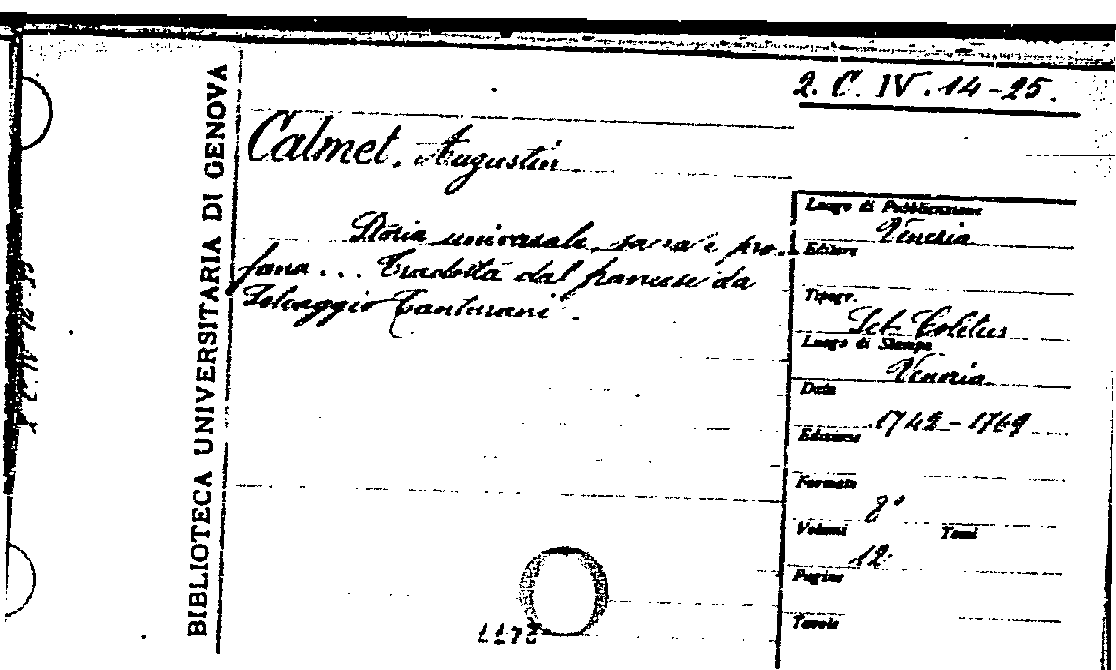 2. C. IV. 14-25.
BIBLIOTECA UNIVERSITARIA DI GENOVA
Calmet, Augustin
Storia universale, sacra e pro-
fana... Tradotta dal francese da
Selvaggio Canturani.
Luogo di Pubblicazione
Venezia
Editore
Tipogr.
Set. Coletus
Luogo di Stampa
Venezia
Data
1742-1769
Edizione
Formato
8°
Volumi
Tomi
12
Pagine
Tavole